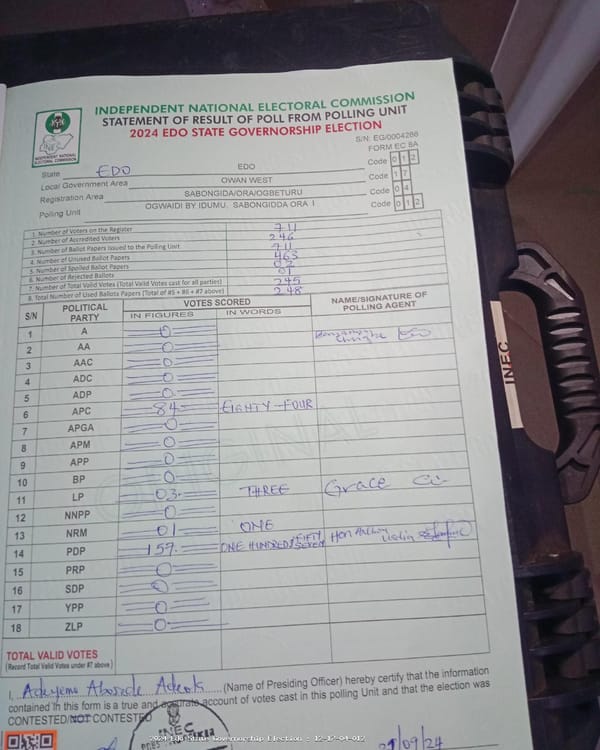 INDEPENDENT NATIONAL ELECTORAL COMMISSION
STATEMENT OF RESULT OF POLL FROM POLLING UNIT
2024 EDO STATE GOVERNORSHIP ELECTION
INEC
INDEPENDENT NATIONAL ELECTORAL COMMISSION
S/N: EG/0004286
FORM EC 8A
State EDO EDO Code 1 2
Local Government Area OWAN WEST Code 1 7
Registration Area SABONGIDA/ORA/OGBETURU Code 0 4
Polling Unit OGWAIDI BY IDUMU. SABONGIDDA ORA I Code 0 1 2
1. Number of Voters on the Register 711
2. Number of Accredited Voters 246
3. Number of Ballot Papers Issued to the Polling Unit 711
4. Number of Unused Ballot Papers 463
5. Number of Spoiled Ballot Papers 02
6. Number of Rejected Ballots 01
7. Number of Total Valid Votes (Total Valid Votes cast for all parties) 245
8. Total Number of Used Ballots Papers (Total of #5 + #6 + #7 above) 248
S/N POLITICAL PARTY VOTES SCORED NAME/SIGNATURE OF POLLING AGENT
IN FIGURES IN WORDS
1 A 0
2 AA 0
3 AAC 0
4 ADC 0
5 ADP 0
6 APC 84 EIGHTY-FOUR
7 APGA 0
8 APM 0
9 APP 0
10 BP 0
11 LP 03 THREE Grace
12 NNPP 0
13 NRM 01 ONE
14 PDP 157 ONE HUNDRED/FIFTY SEVEN Hon
15 PRP 0
16 SDP 0
17 YPP 0
18 ZLP 0
TOTAL VALID VOTES
(Record Total Valid Votes under #7 above)
I, (Name of Presiding Officer) hereby certify that the information
contained in this form is a true and accurate account of votes cast in this polling Unit and that the election was
CONTESTED/NOT CONTESTED
INEC
/09/24
2024 Edo State Governorship Election : 12-17-04-012
INEC